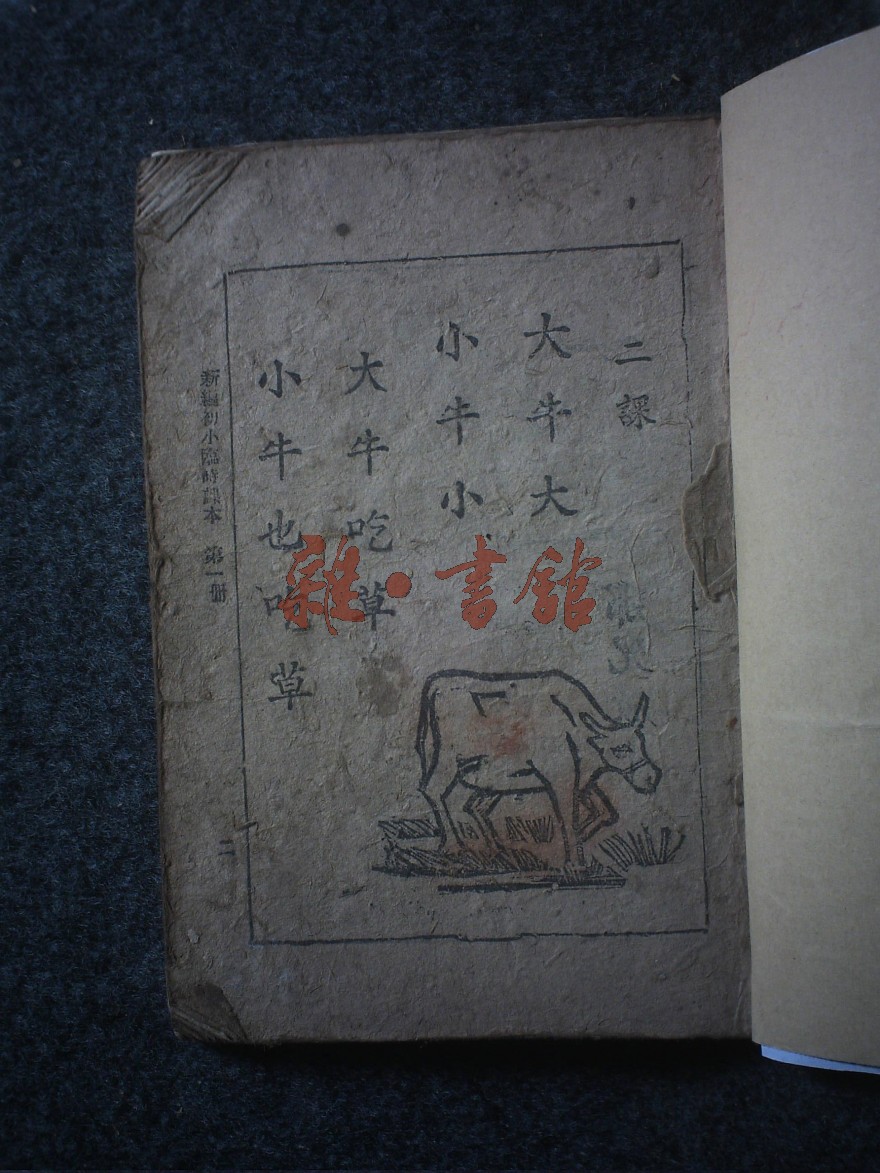 二課
大牛大
小牛小
大牛吃草
小牛也吃草
新編初小臨時課本 第一册
二
雜·書舘